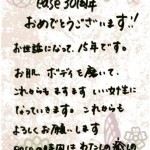 ease 30周年
おめでとうございます!!
お世話になって、15年です。
お肌、ボディを磨いて、
これからもますます いい女性に
なっていきます。これからも
よろしくお願いします
easeの時間はわたしの癒しの